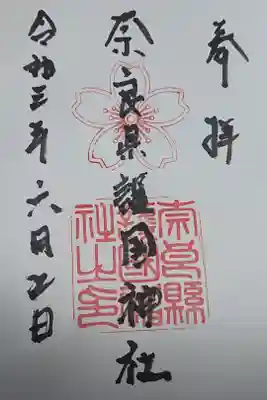 奉拝
奈良県護国神社
令和三年六月日
奈良縣
護國神
社之印